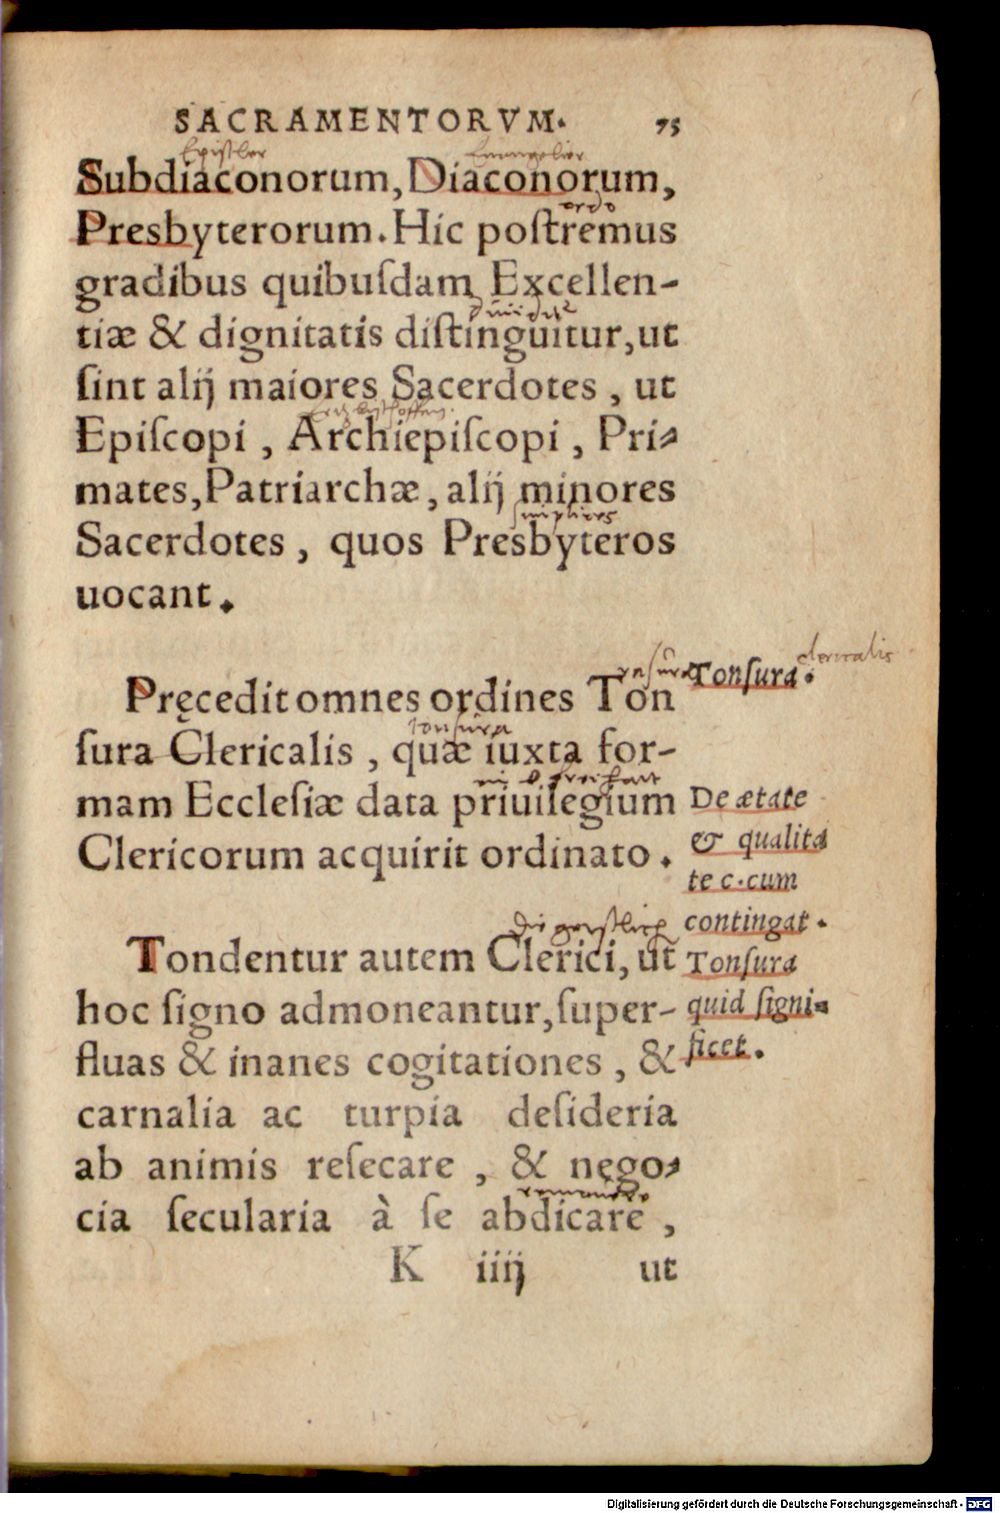 SACRAMENTORVM. 75
Epistler Euangelier
Subdiaconorum, Diaconorum,
ordo
Presbyterorum. Hic poſtremus
gradibus quibuſdam Excellen-
tiæ & dignitatis diſtinguitur, ut
ſint alij maiores Sacerdotes, ut
Epiſcopi, Archiepiſcopi, Pri-
mates, Patriarchæ, alij minores
simplices
Sacerdotes, quos Presbyteros
uocant.
rasura
Pręcedit omnes ordines Ton
tonsura
ſura Clericalis, quæ iuxta for-
mam Ecclesiæ data priuilegium
Clericorum acquirit ordinato.
die geistlich
Tondentur autem Clerici, ut
hoc ſigno admoneantur, ſuper-
fluas & inanes cogitationes, &
carnalia ac turpia deſideria
ab animis reſecare, & nego-
cia ſecularia à ſe abdicare,
K iiij ut
clericalis
Tonſura.
De ætate
& qualita
te c. cum
contingat.
Tonſura
quid ſigni-
ficet.
Digitalisierung gefördert durch die Deutsche Forschungsgemeinschaft - DFG